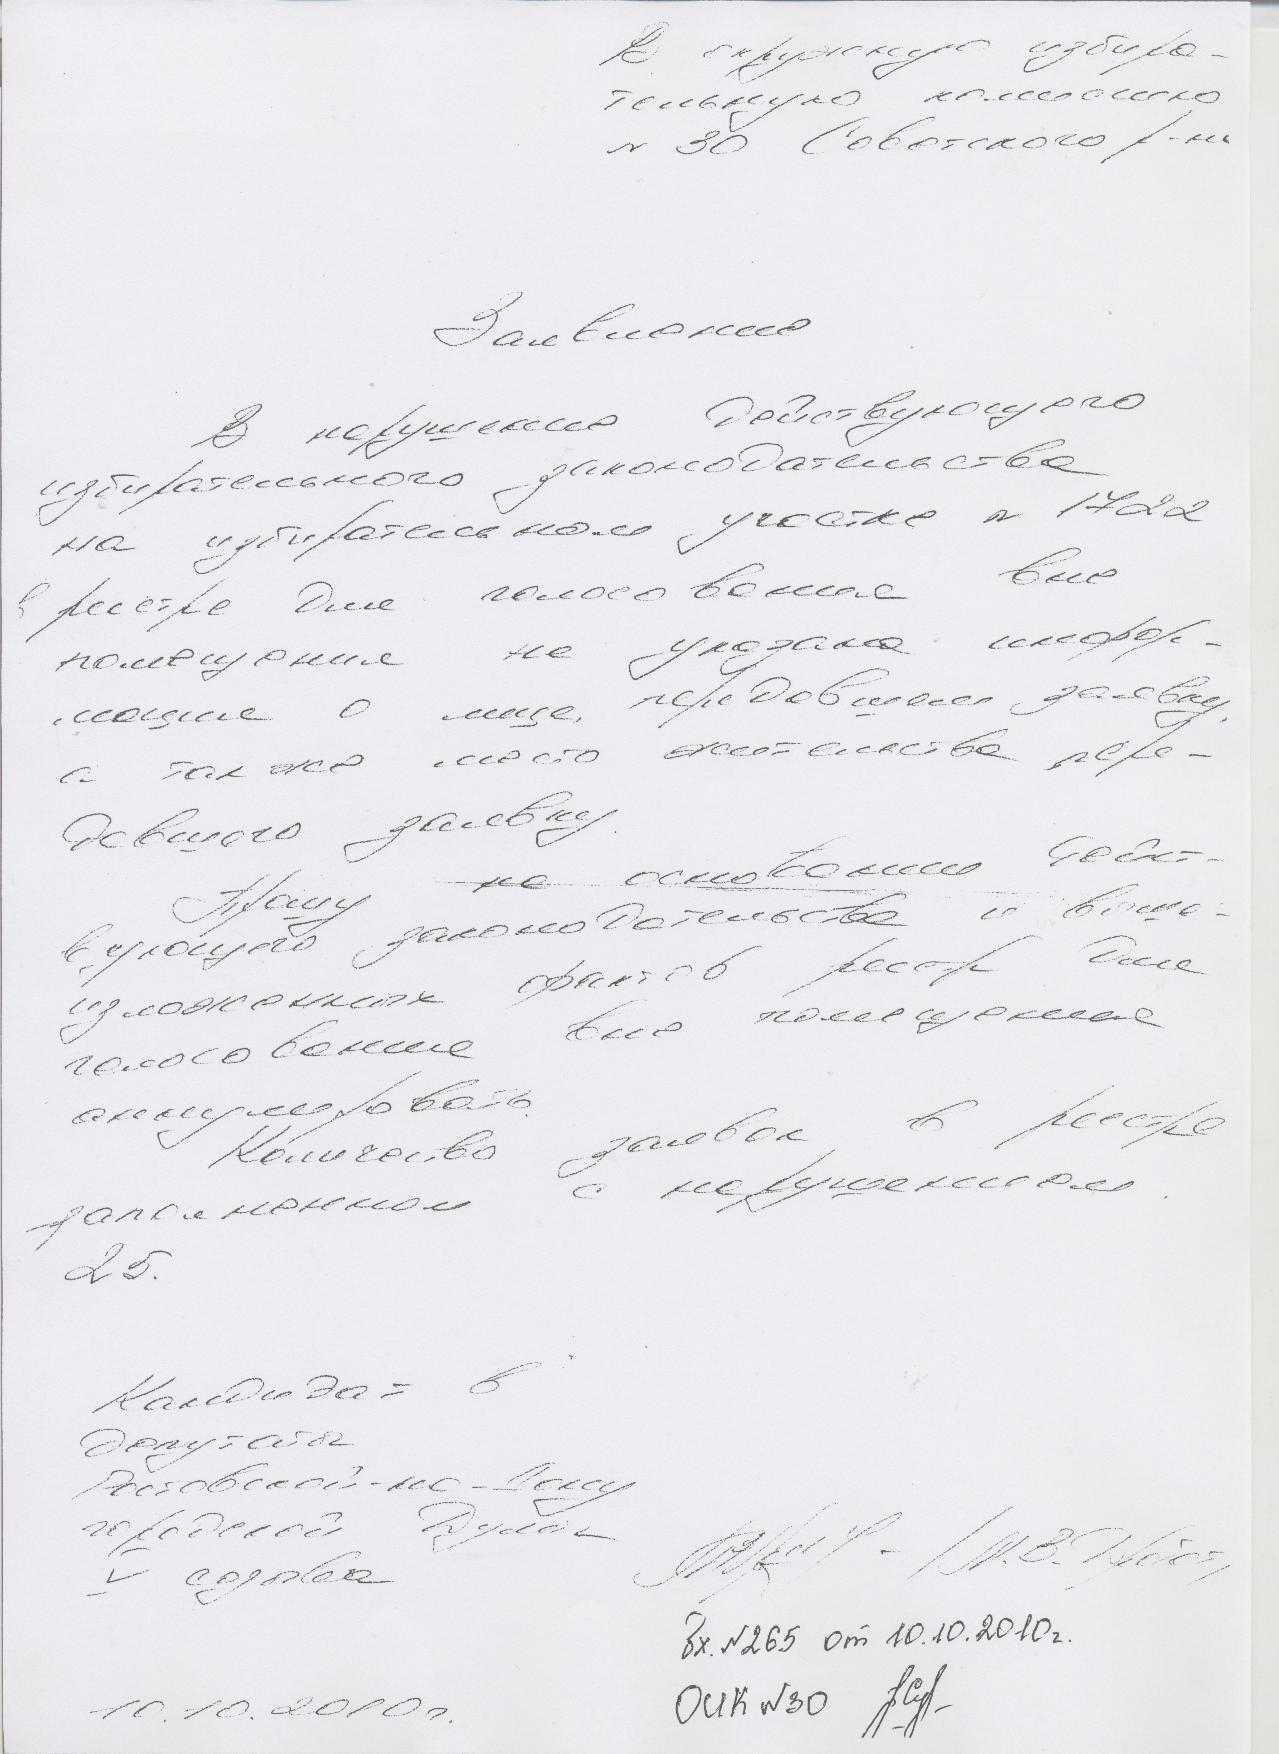 В окружную избира-
тельную комиссию
№ 30 Советского р-на
Заявление
В нарушение действующего
избирательного законодательства
на избирательном участке № 1722
в реестре для голосования вне
помещения не указана инфор-
мация о лице, передавшем заявку,
а также место жительства пере-
давшего заявку.
Прошу на основании дейст-
вующего законодательства и выше-
изложенных фактов реестр для
голосования вне помещения
аннулировать.
Количество заявок в реестре
заполненном с нарушением
25.
Кандидат в
депутаты
Ростовской-на-Дону
городской Думы
V созыва
М.В.
Вх. №265 от 10.10.2010г.
ОИК №30
10.10.2010г.